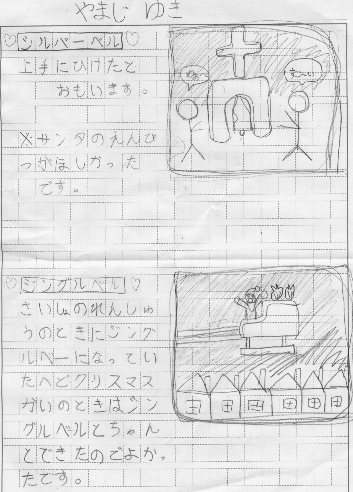 やまじ ゆき
♡シルバーベル♡
上手にひけたと
おもいます。
わぁ〜
すご〜い
※サンタのえんぴ
つがほしかった
です。
♡ジングルベル♡
さいしょのれんしゅ
うのときにジング
ルベーになってい
たへどクリスマス
かいのときはジン
グルベルとちゃん
とできたのでよか。
たです。